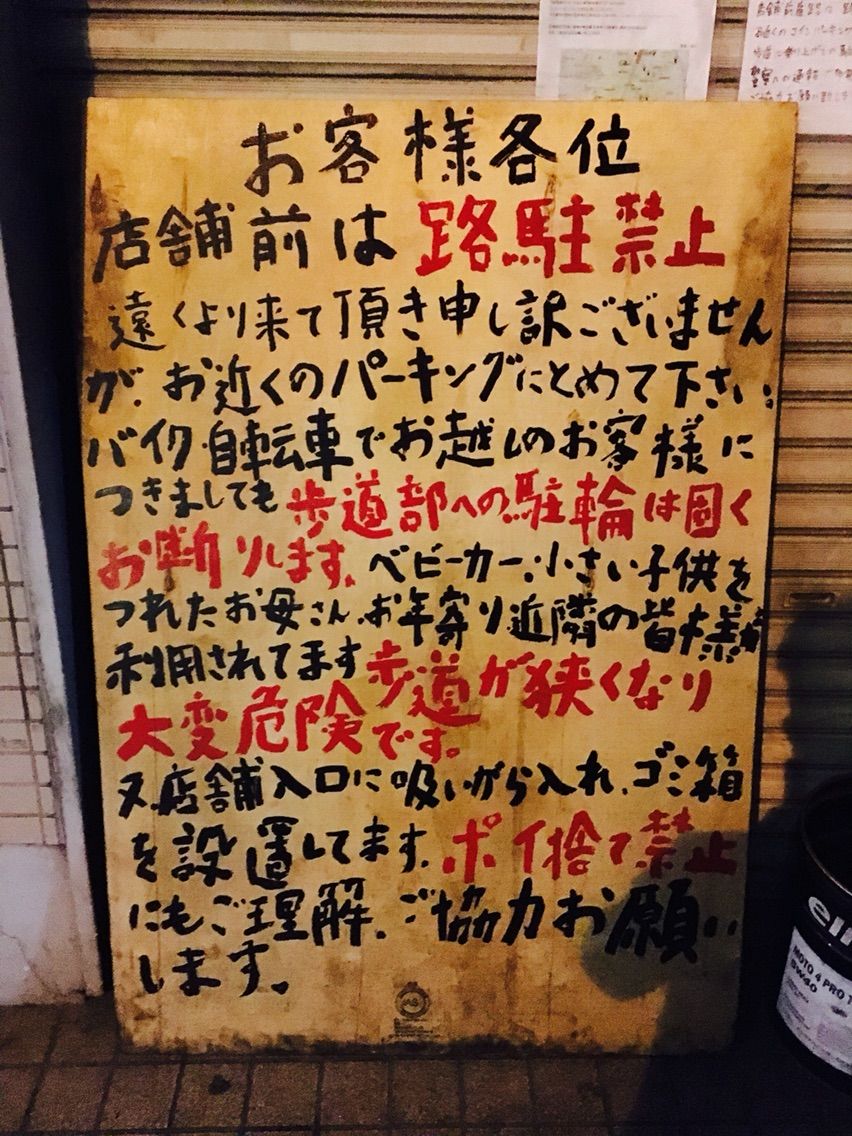 お客様各位
店舗前は路駐禁止
遠くより来て頂き申し訳ございません
が、お近くのパーキングにとめて下さい。
バイク・自転車でお越しのお客様に
つきましても歩道部への駐輪は固く
お断りします。ベビーカー、小さい子供を
つれたお母さん、お年寄り近隣の皆様が
利用されてます歩道が狭くなり
大変危険です。
又、店舗入口に吸いがら入れ、ゴミ箱
を設置してます。ポイ捨て禁止
にもご理解、ご協力お願い
します。
elf
MOTO 4 PRO
5W40